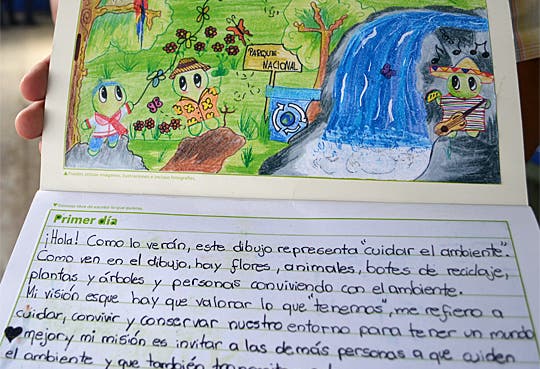 PARQUE
NACIONAL
▲ Puedes utilizar imágenes, ilustraciones e incluso fotografías.
Primer día
¡Hola! Como lo verán, este dibujo representa "cuidar el ambiente".
Como ven en el dibujo, hay flores, animales, botes de reciclaje,
plantas y árboles y personas conviviendo con el ambiente.
Mi visión es que hay que valorar lo que "tenemos", me refiero a
cuidar, convivir y conservar nuestro entorno para tener un mundo
♥ mejor y mi misión es invitar a las demás personas a que cuiden
el ambiente y que también